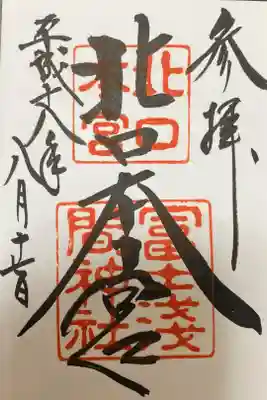 参拝
北口本宮
平成十八年
八月
北口
本宮
冨士浅
間神社